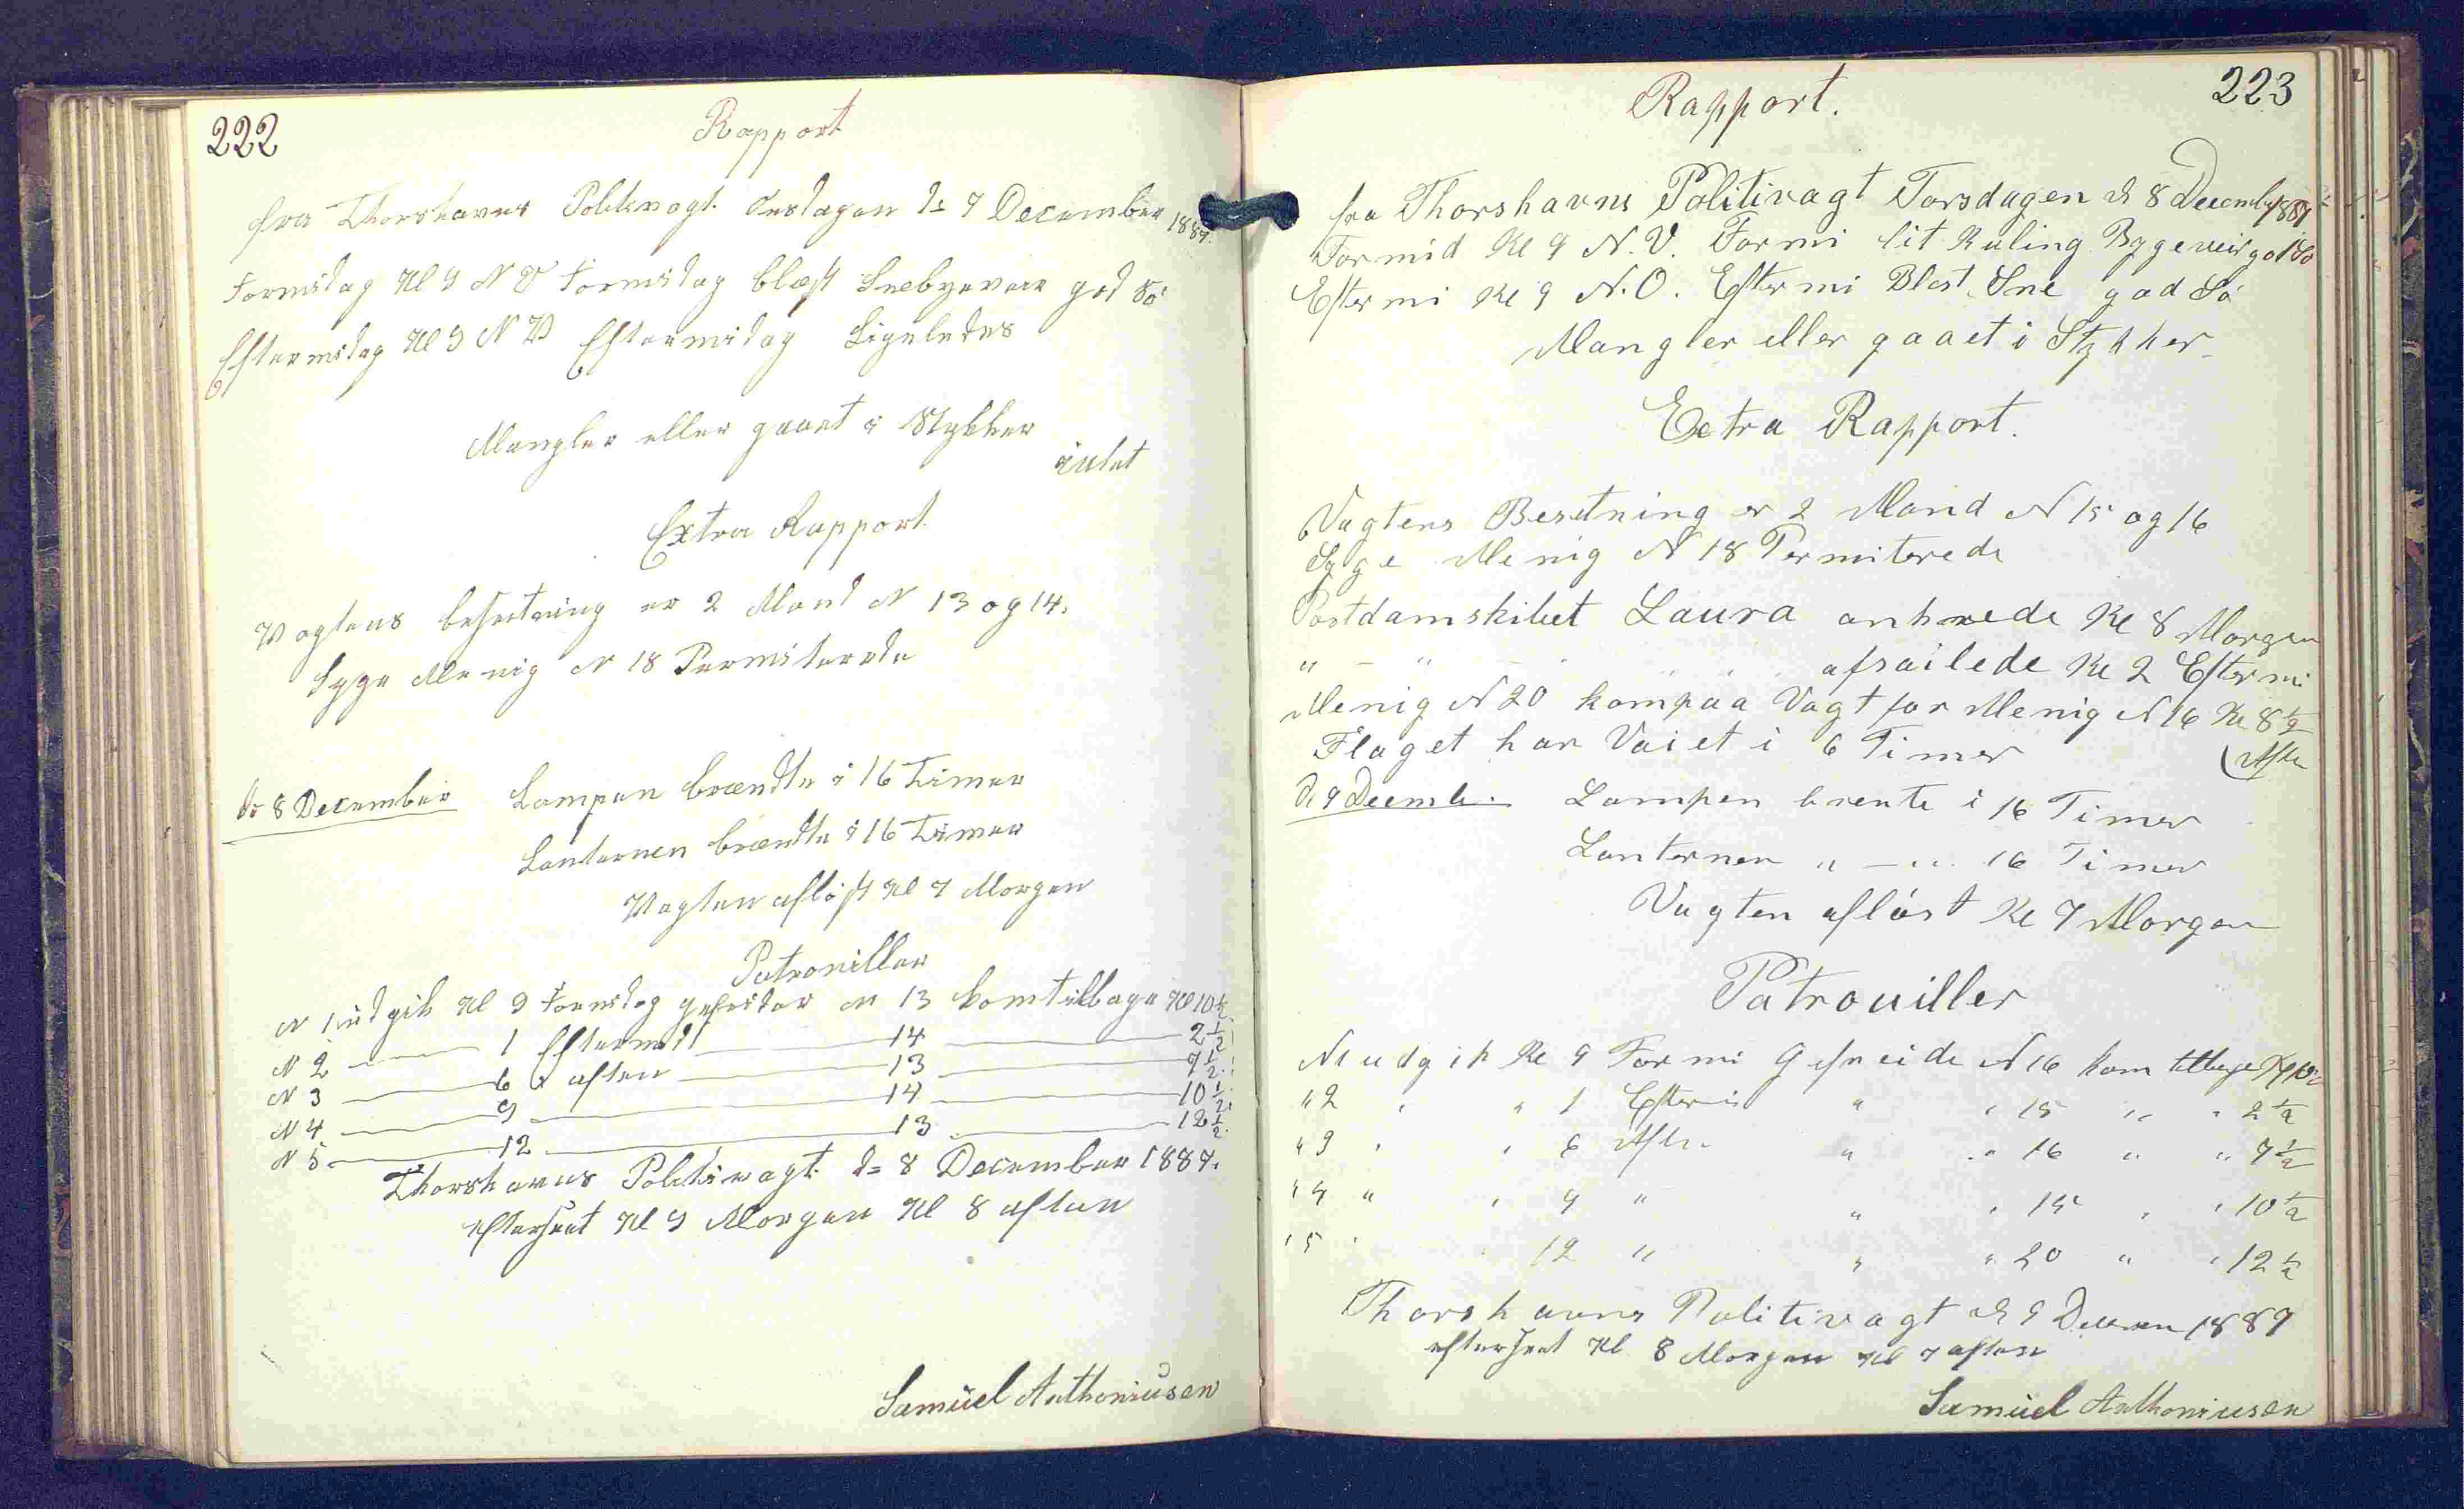 222
Rapport
fra Thorshavns Politivagt Onsdagen d= 7 December 1887.
Formidag Kl 9 N V Formidag blæst Sneebyeveir god Sö
Eftermidag Kl 9 N V Eftermidag Ligeledes
Mangler eller gaaet i Stykker
intet
Extra Rapport
Vagtens besætning er 2 Mand N 13 og 14.
Syge Menig N 18 Permiterede
d= 8 December Lampen brændte i 16 Timer
Lanternen brændte i 16 Timer
Vagten aflöst Kl 7 Morgen
Patrouiller
N 1 udgik Kl 9 Formidag gefreider N 13 kom tilbage Kl 10 1/2
N 2 — 1 Eftermid — 14 — 2 1/2
N 3 — 6 aften — 13 — 7 1/2
N 4 — 9 — 14 — 10 1/2
N 5 — 12 — 13 — 12 1/2
Thorshavns Politivagt d= 8 December 1887.
efterseet Kl 9 Morgen Kl 8 aften
Samuel Anthoniusen
223
Rapport.
fra Thorshavns Politivagt Torsdagen d 8 December 1887
Formid Kl 9 N.V. Formi lit Kuling Bygeveir god Sö
Eftermi Kl 9 N.O. Eftermi Blest Sne god Sö
Mangler eller gaaet i Stykker
Extra Rapport.
Vagtens Besetning er 2 Mand N 15 og 16
Syge Menig N 18 Permiterede
Postdamskibet Laura ankrede Kl 8 Morgen
" — " afsailede Kl 2 Eftermi
Menig N 20 kom paa Vagt for Menig N 16 Kl 8 1/2
(Aften
Flaget har Vaiet i 6 Timer
D. 9 Decemb. Lampen brente i 16 Timer
Lanternen " — " 16 Timer
Vagten aflöst Kl 7 Morgen
Patrouiller
N 1 udgik Kl 9 Formi Gefreide N 16 kom tilbage Kl 10 1/2
" 2 " " 1 Eftermi " " 15 " " 2 1/2
" 3 " " 6 Aften " " 16 " " 7 1/2
" 4 " " 9 " " " 15 " " 10 1/2
" 5 " 12 " " " 20 " " 12 1/2
Thorshavns Politivagt d 9 Decemm 1887
efterseet Kl 8 Morgen Kl 7 aften
Samuel Anthoniusen